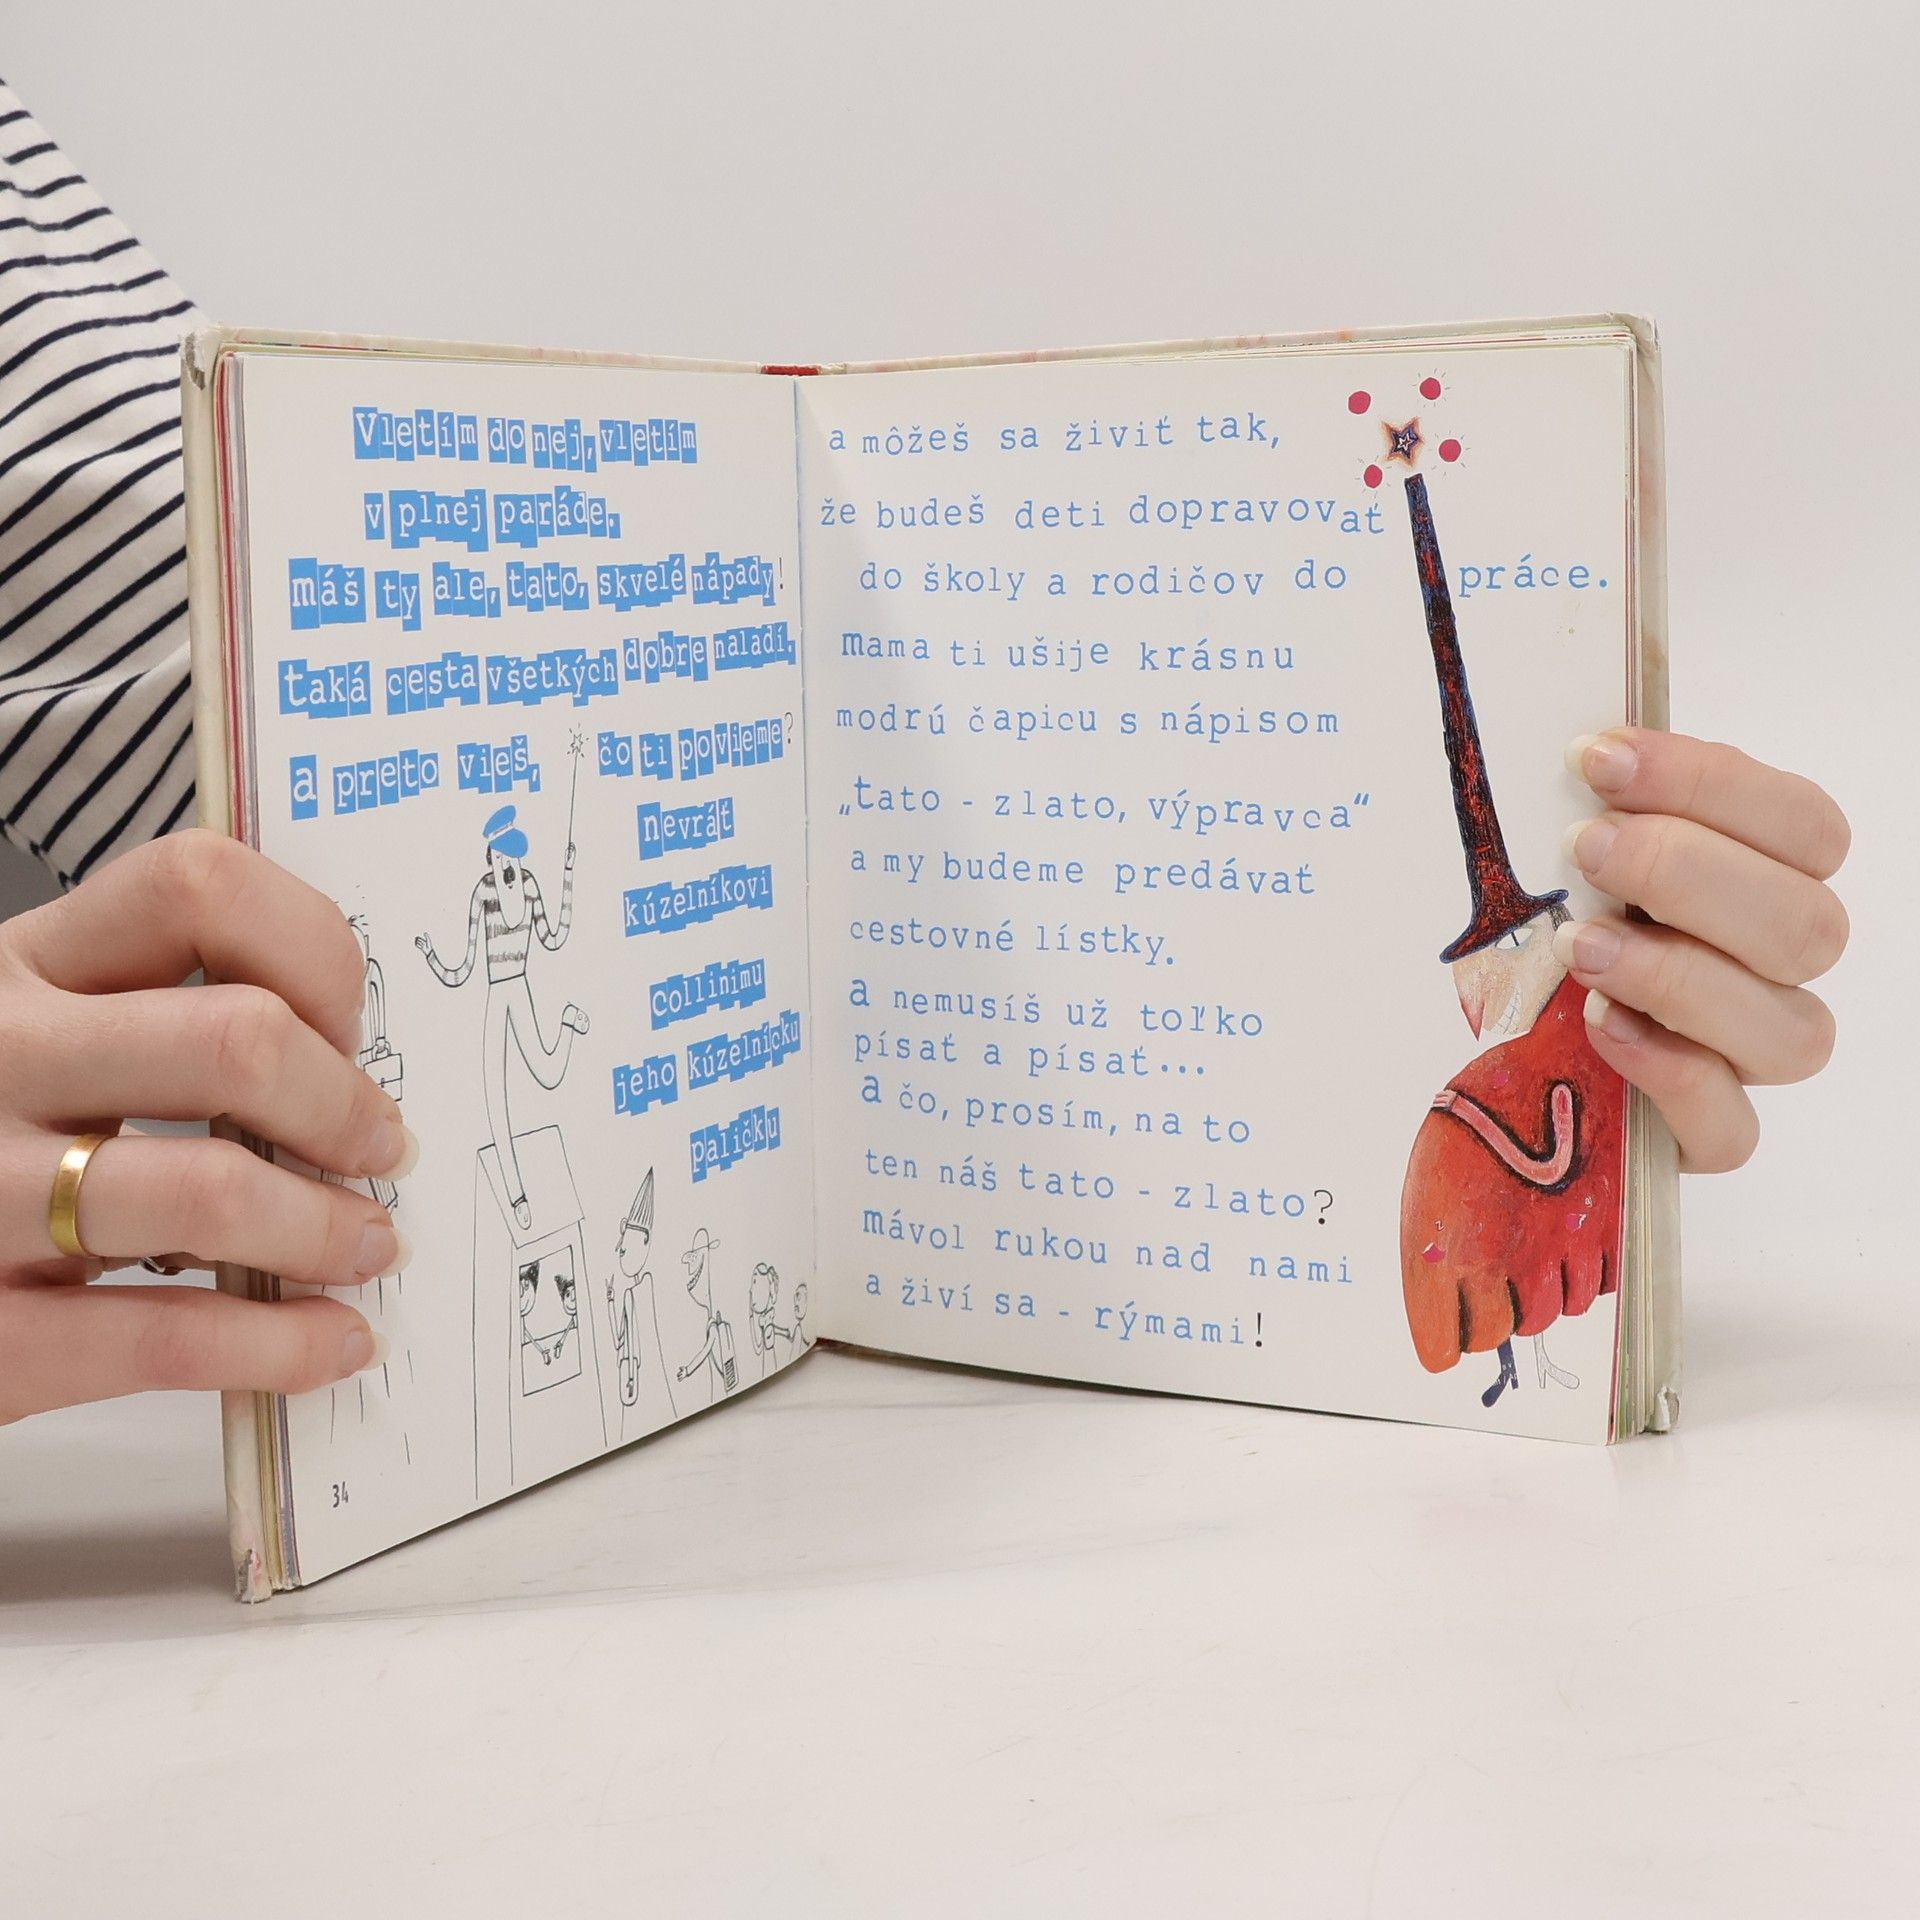 Vletím do nej, vletím
v plnej paráde.
máš ty ale, tato, skvelé nápady!
taká cesta všetkých dobre naladí,
a preto vieš, čo ti povieme?
nevráť
kúzelníkovi
collinimu
jeho kúzelnícku
paličku
34
a môžeš sa živiť tak,
že budeš deti dopravovať
do školy a rodičov do práce.
mama ti ušije krásnu
modrú čapicu s nápisom
„tato - zlato, výpravca“
a my budeme predávať
cestovné lístky.
a nemusíš už toľko
písať a písať...
a čo, prosím, na to
ten náš tato - zlato?
mávol rukou nad nami
a živí sa - rýmami!